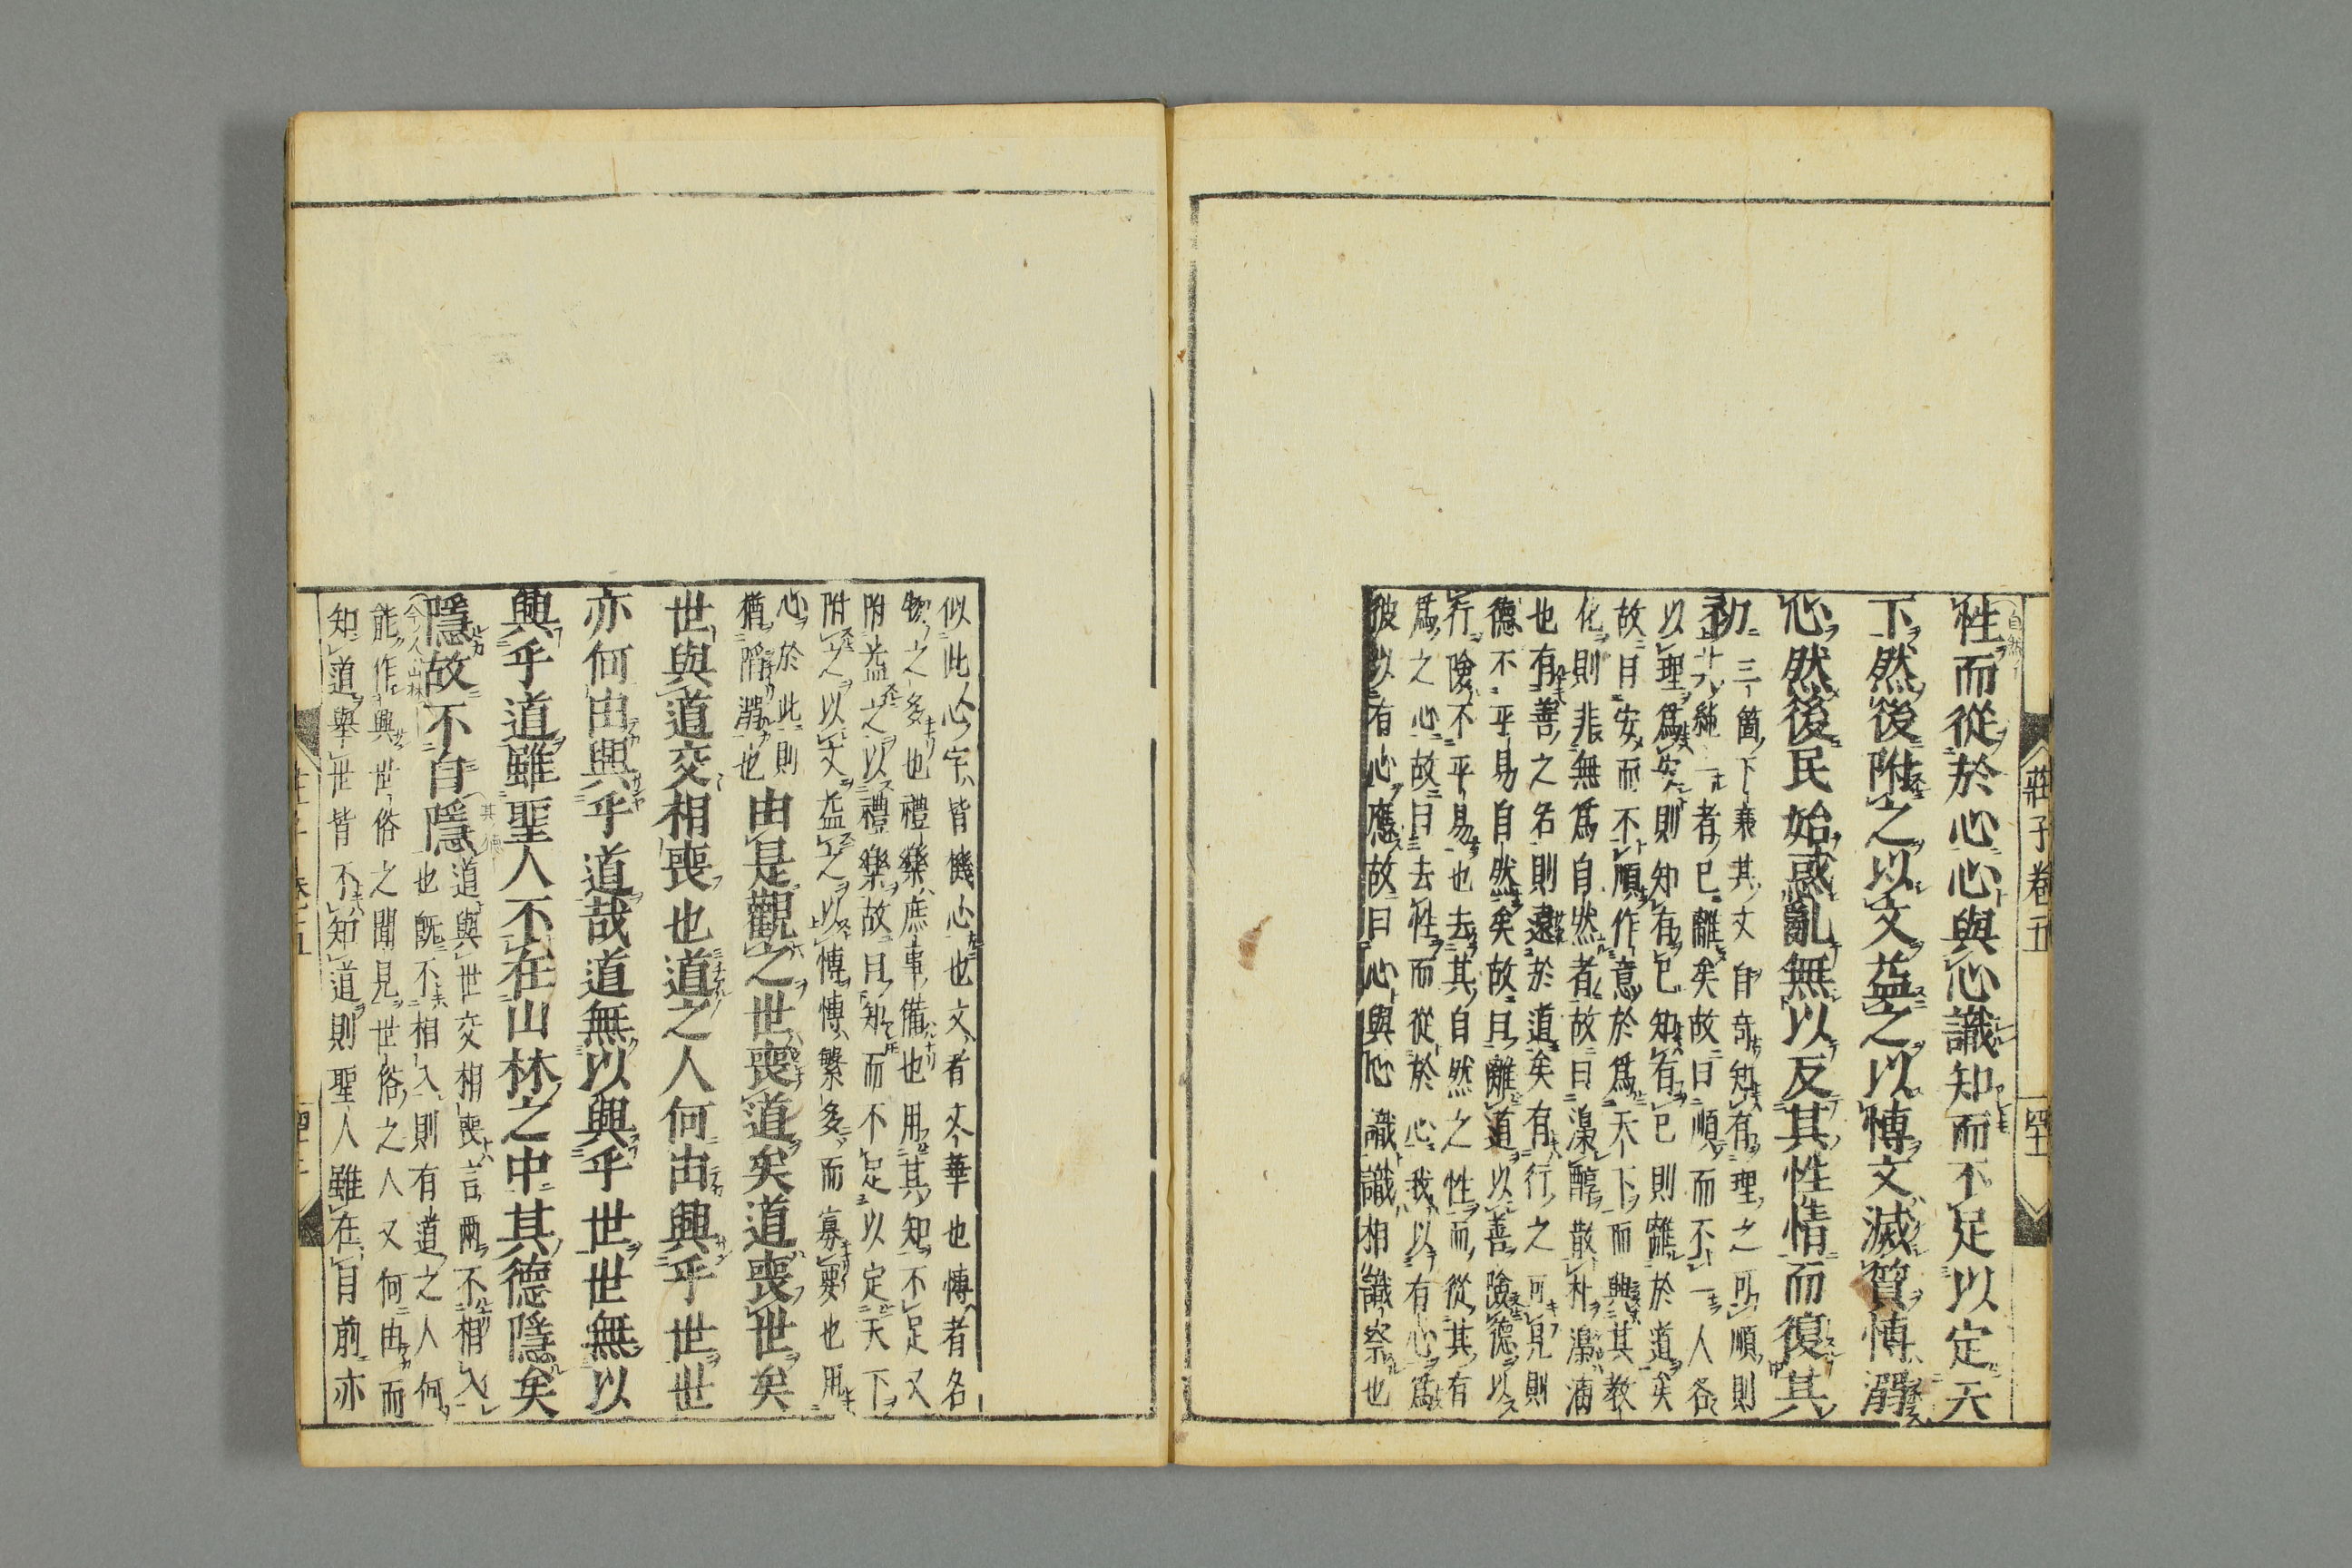 莊子卷五
性而從於心心與心識知而不足以定天
下然後附之以文益之以愽文滅質愽溺
心然後民始惑亂無以反其性情而復其
初三箇下衰其文自奇知有理之可順則
不純一者已離矣故曰順而不一人各
以理爲安則知有已知有已則離於道矣
故曰安而不順作意於爲天下而興其教
化則非無爲自然者故曰澆醇散朴澆漓
也有善之名則遠於道矣有行之可見則
德不平易自然矣故曰離道以善險德以
行險不平易也去其自然之性而從其有
爲之心故曰去性而從於心我以有心爲
彼以有心應故曰心與心識識相識察也
似此心字皆機心也文者文華也愽者名
物之多也禮樂庶事備也用其知不足又
附益之以禮樂故曰知而不足以定天下
附之以文益之以愽愽繁多而寡要也用
心於此則
猶陷溺也
由是觀之世喪道矣道喪世矣
世與道交相喪也道之人何由興乎世世
亦何由興乎道哉道無以興乎世世無以
興乎道雖聖人不在山林之中其德隱矣
隱故不自隱
道與世交相喪言兩不相入
也既不相入則有道之人何
能作興世俗之聞見世俗之人又何由而
知道舉世皆不知道則聖人雖在目前亦